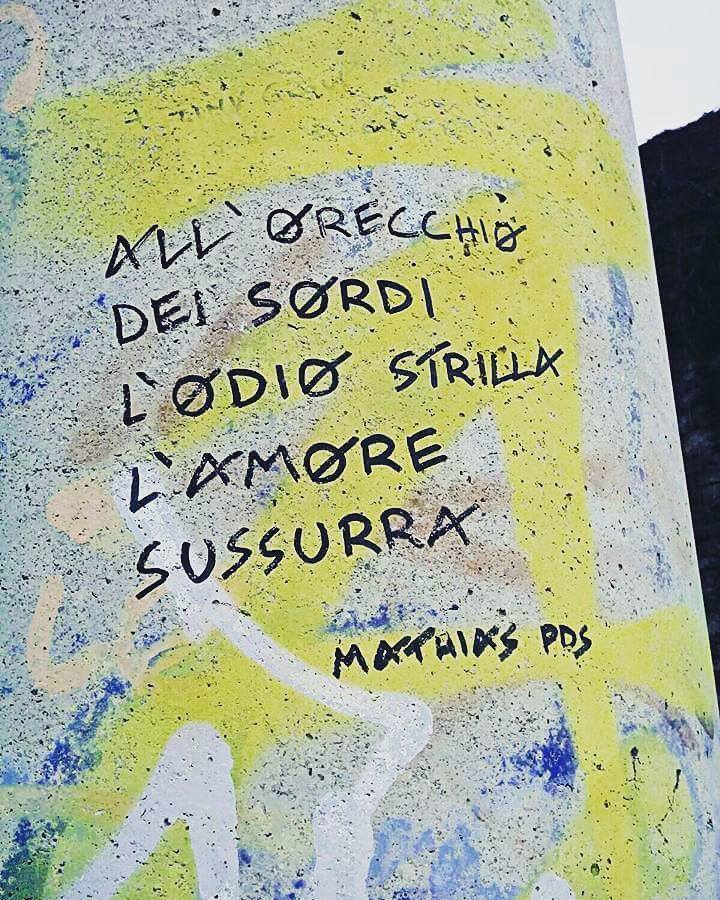 ALL'ORECCHIO
DEI SORDI
L'ODIO STRILLA
L'AMORE
SUSSURRA
MATHIAS PDS